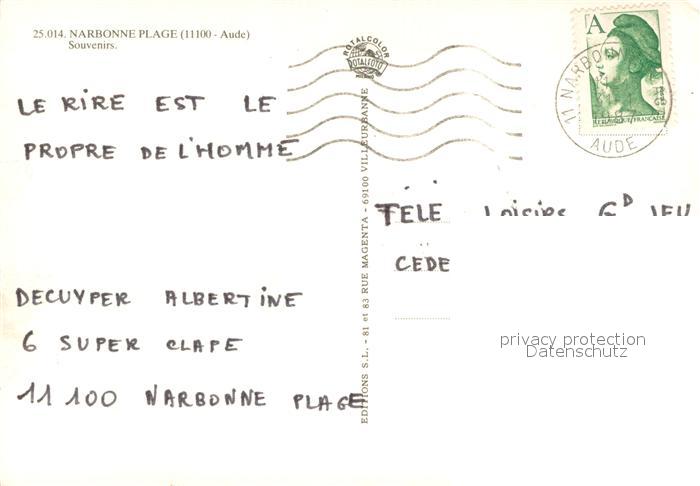 25.014. NARBONNE PLAGE (11100 - Aude)
Souvenirs.
ROTALCOLOR
ROTALFOTO
A
RÉPUBLIQUE FRANÇAISE
11 NARBONNE
AUDE
LE RIRE EST LE
PROPRE DE L'HOMME
EDITIONS S.L. - 81 et 83 RUE MAGENTA - 69100 VILLEURBANNE
TÉLÉ LOISIRS GD JEU
CEDE
DECUYPER ALBERTINE
6 SUPER CLAPE
11 100 NARBONNE PLAGE
privacy protection
Datenschutz